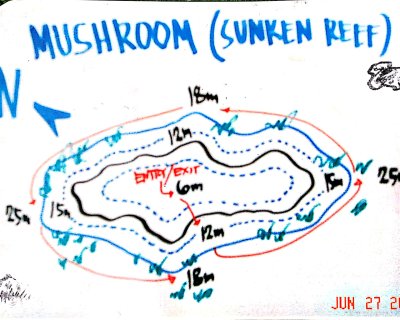 MUSHROOM (SUNKEN REEF)
N
18m
12m
ENTRY/EXIT
60m
25m
15m
15m
25
12m
18m
JUN 27 20